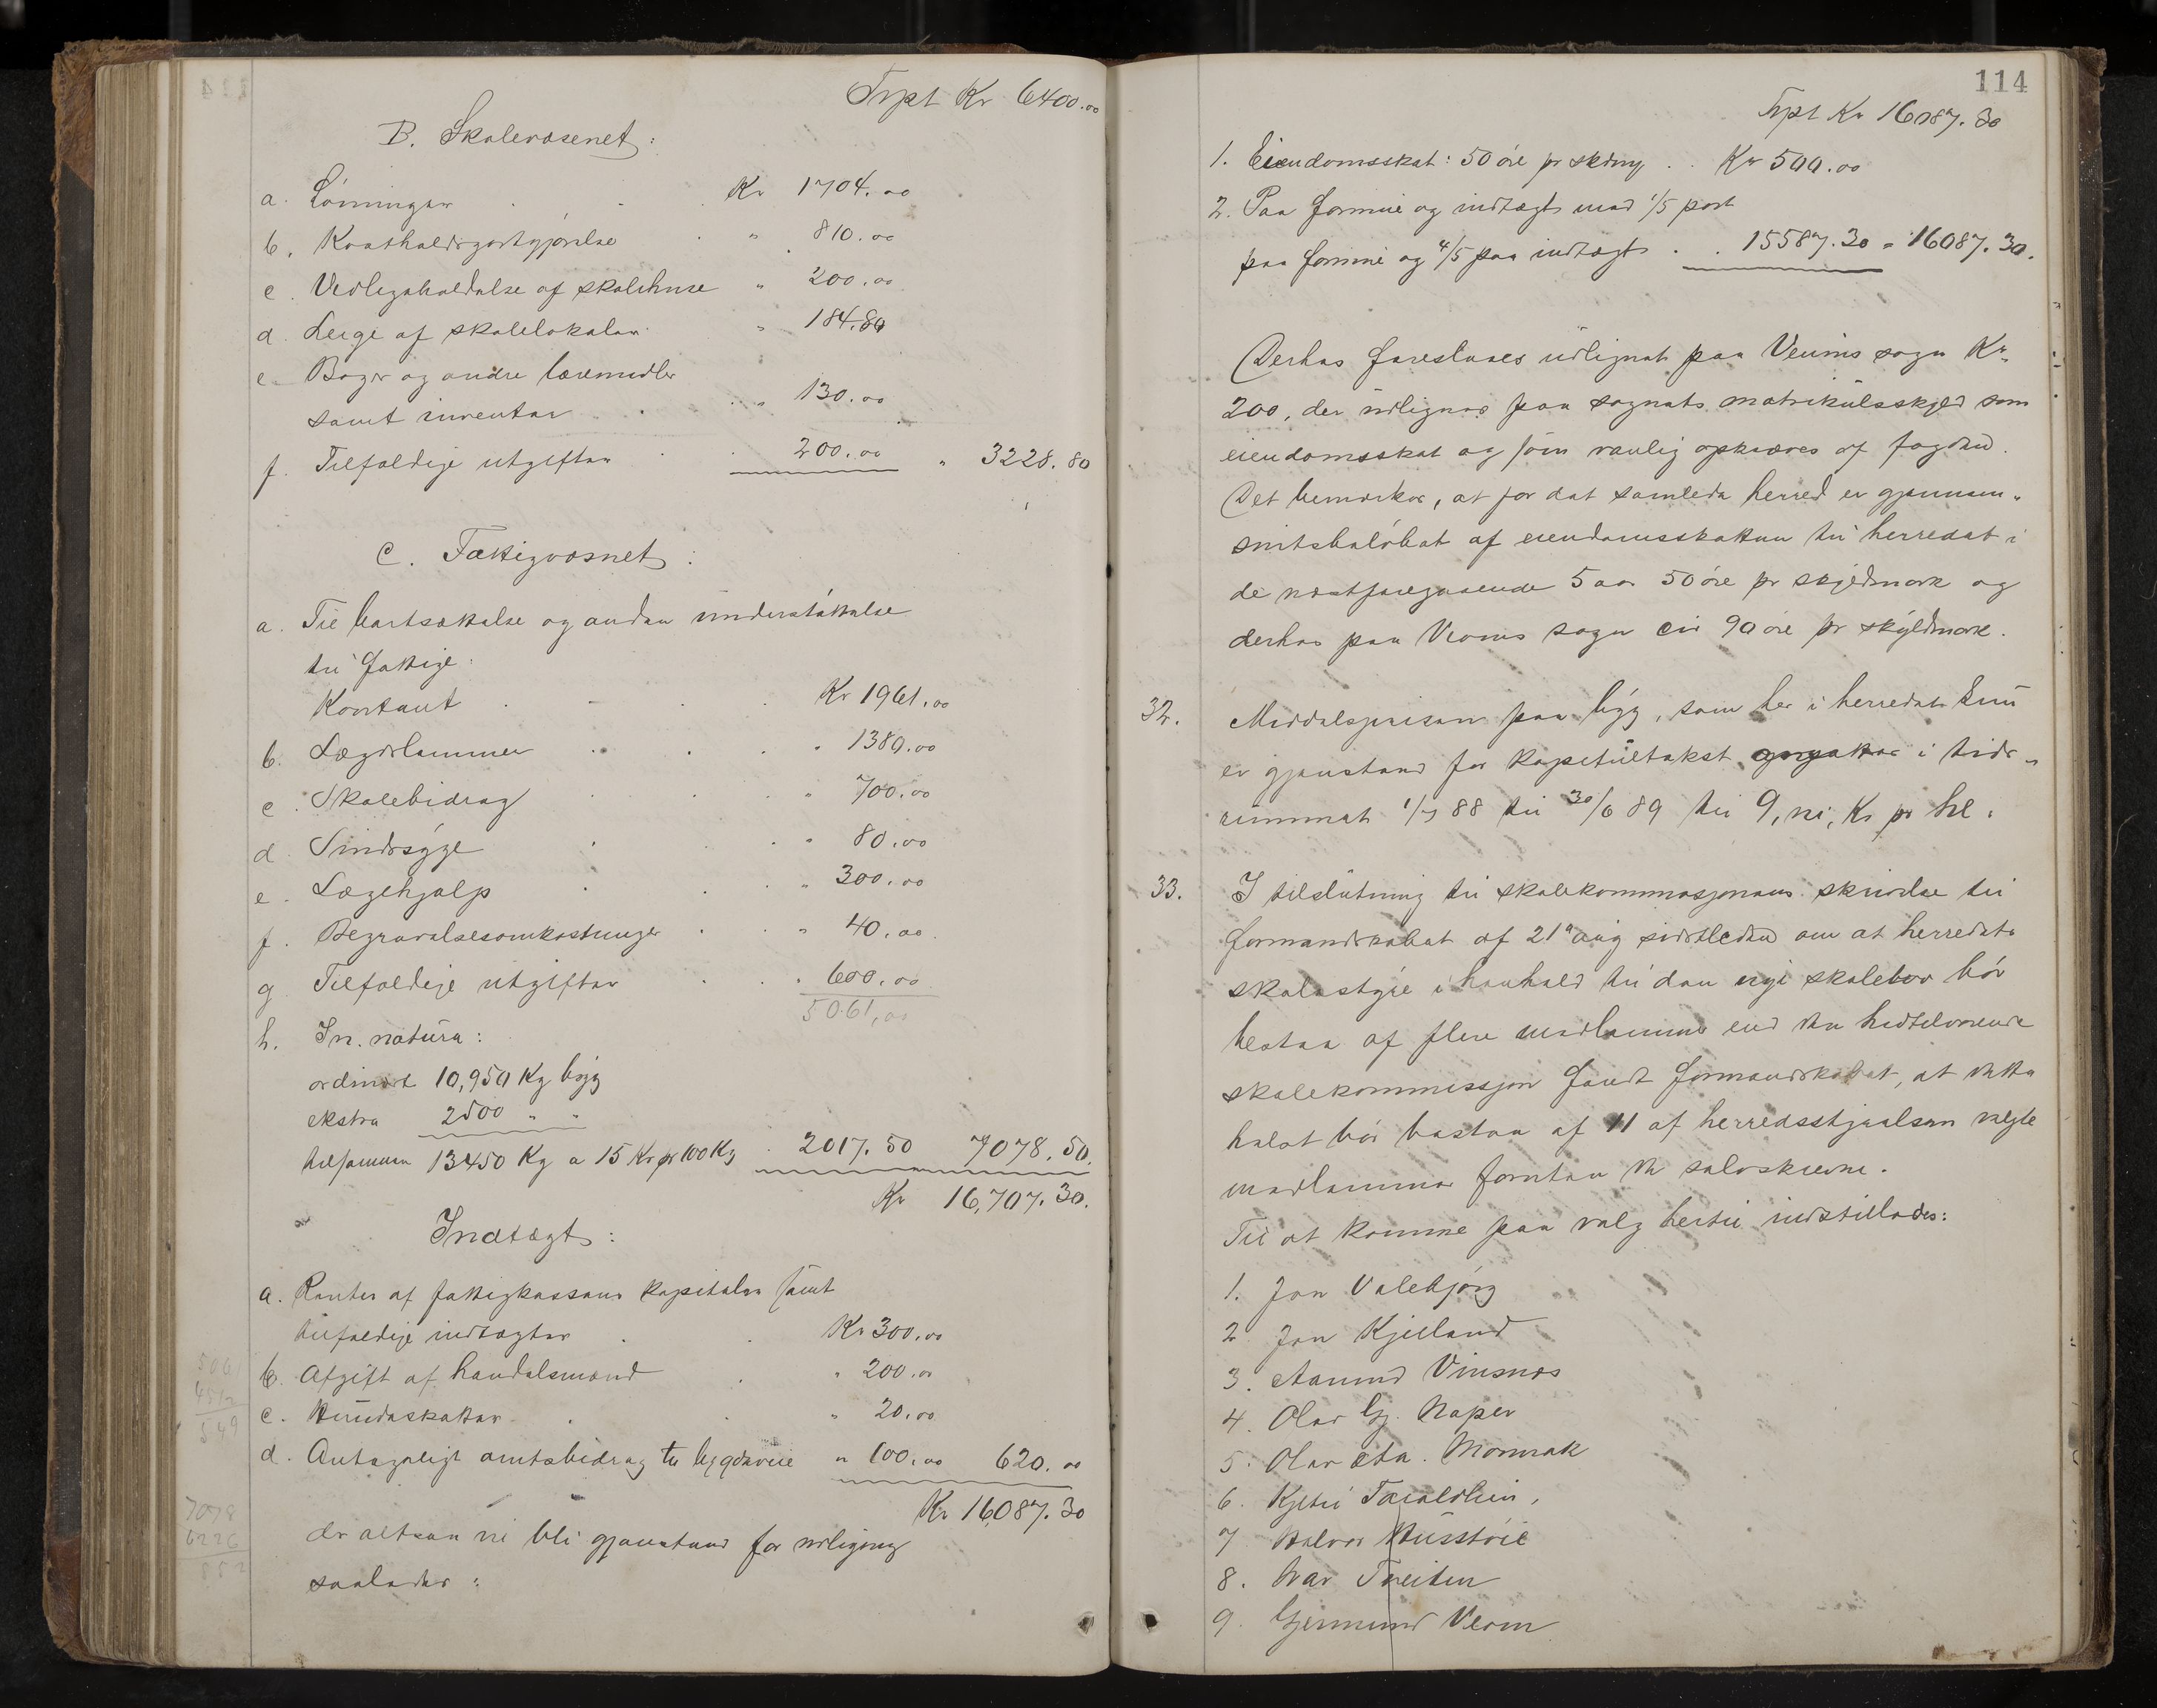 Trpt Kr 6400.00
B. Skolevæsenet:
a. Lönninger Kr 1704.00
b. Kostholdsgodtgjörelse " 810.00
c. Vedligeholdelse af skolehuse " 200.00
d. Leige af skolelokaler " 184.80
e. Böger og andre læremidler
samt inventar " 130.00
f. Tilfældige utgifter 200.00 " 3228.80
C. Fattigvæsnet:
a. Til bortsættelse og anden understöttelse
til fattige:
Kontant Kr 1961.00
b. Lægdslemmer " 1380.00
c. Skolebidrag " 700.00
d. Sindssyge " 80.00
e. Lægehjælp " 300.00
f. Begravelsesomkostninger " 40.00
g. Tilfældige utgifter " 600.00
5061,00
h. In natura:
ordinært 10,950 Kg bygg
ekstra 2500 " "
tilsammen 13450 Kg a 15 Kr pr 100 Kg 2017.50 7078.50.
Kr 16,707.30.
Indtægt:
a. Renter af fattigkassens kapitaler samt
tilfældige indtægter Kr 300.00
b. Afgift af handelsmænd " 200.00
c. Hundeskatter " 20.00
d. Antageligt amtsbidrag til bygdeveie " 100.00 620.00
Kr 16,087.30
der altsaa vil bli gjenstand for utligning
saaledes:
5061
4512
549
7078
6226
852
114
Trpt Kr 16087.30
1. Eiendomsskat: 50 öre pr skmrk . . Kr 500.00
2. Paa formue og indtægt med 1/5 part
paa formue og 4/5 paa indtægt . . 15587.30 = 16087.30.
Derhos foreslaaes utlignet paa Veums sogn Kr.
200, der utlignes paa sognets matrikulskyld som
eiendomsskat og som vanlig opkræves af fogden.
Det bemærkes, at for det samlede herred er gjennem-
snitsbelöbet af eiendomsskatten til herredet i
de næstforegaaende 5 aar 50 öre pr skyldmark og
derhos paa Veums sogn cir 90 öre pr skyldmark.
32. Middelsprisen paa bygg, som her i herredet kun
er gjenstand for kapiteltakst, i tids-
rummet 1/7 88 til 30/6 89 til 9, ni, Kr pr hl.
33. I tilslutning til skolekommissjonens skrivelse til
formandskabet af 21 aug sidstleden om at herredets
skolestyre i henhold til den nye skolelov bör
bestaa af flere medlemmer end den hidtilværende
skolekommissjon fandt formandskabet, at dette
talet bör bestaa af 11 af herredsstyrelsen valgte
medlemmer foruten de selvskrevne.
Til at komme paa valg hertil indstilledes:
1. Jon Valebjörg
2. Jon Kjelland
3. Aamund Vinsnes
4. Olav Gj. Naper
5. Olav Momrak
6. Kjetil Taraldlien,
7. Halvor Husstöil
8. Ivar Treiten
9. Gjermund Veum